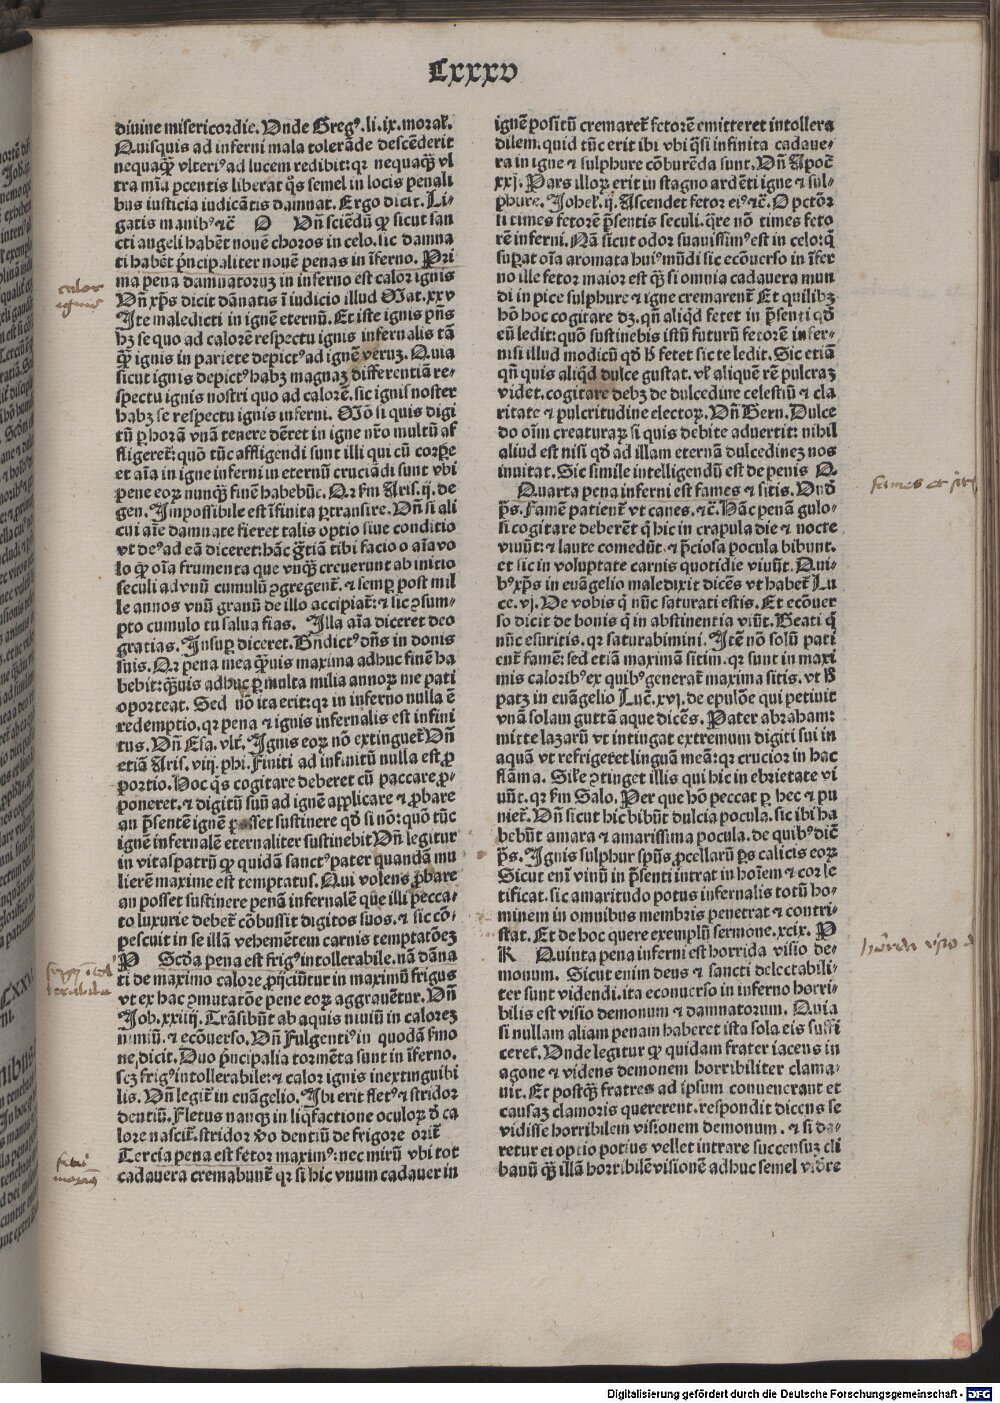 Lxxxv
diuine misericordie. Vnde Gregꝰ. li. ix. moraꝉ.
Quisquis ad inferni mala tolerāde descēderit
nequaqȝ̄ vlteriꝰ ad lucem redibit: qꝛ nequaqȝ̄ vl
tra mīa ꝑcentis liberat q̄s semel in locis penali
bus iusticia iudicātis damnat. Ergo dicit. Li-
gatis manibꝰ ⁊c̄ O Vn̄ sciēdū ꝙ sicut san
cti angeli habēt nouē choros in celo. sic damna
ti habēt pͥncipaliter nouē penas in īferno. Pri
ma pena damnatoruꝫ in inferno est calor ignis
Vn̄ xp̄s dicit dānatis ī iudicio illud Mat. xxv
Ite maledicti in ignē eternū. Et iste ignis pn̄s
hꝫ se quo ad calorē respectu ignis infernalis tā
qȝ̄ ignis in pariete depictꝰ ad ignē veruꝫ. Quia
sicut ignis depictꝰ habꝫ magnaꝫ differentiā re-
spectu ignis nostri quo ad calorē. sic ignis noster
habꝫ se respectu ignis inferni. Mō si quis digi
tū ꝑ horā vnā tenere dēret in igne nr̄o multū af
fligeret̄: quō tūc affligendi sunt illi qui cū corꝑe
et aīa in igne inferni in eternū cruciādi sunt vbi
pene eoꝝ nunqȝ̄ finē habebūt. Qꝛ ẜm Aris. ij. de
gen. Impossibile est īfinita ꝑtransire. Vn̄ si ali
cui aīe damnate fieret talis optio siue conditio
vt deꝰ ad eā diceret: hāc grātiā tibi facio o aīa vo
lo ꝙ oīa frumenta que vnqȝ̄ creuerunt ab initio
seculi ad vnū cumulū ꝯgregent̄. ⁊ semꝑ post mil
le annos vnū granū de illo accipiat̄: ⁊ sic ꝯsum-
pto cumulo tu salua fias. Illa aīa diceret deo
gratias. Insuꝑ diceret. Bn̄dictꝰ dn̄s in donis
suis. Qꝛ pena mea qȝ̄uis maxima adhuc finē ha
bebit: qȝ̄uis adhuc ꝑ multa milia annoꝝ me pati
oporteat. Sed nō ita erit: qꝛ in inferno nulla ē
redemptio. qꝛ pena ⁊ ignis infernalis est infini
tus. Vn̄ Esa. vlt̄. Ignis eoꝝ nō extinguet̄ Vn̄
etiā Aris. viij. phi. Finiti ad infinitū nulla est ꝓ
portio. Hoc q̄s cogitare deberet cū peccare ꝓ-
poneret. ⁊ digitū suū ad ignē applicare ⁊ ꝓbare
an pn̄sentē ignē posset sustinere qd̄ si nō: quō tūc
ignē infernalē eternaliter sustinebit Vn̄ legitur
in vitaspatrū ꝙ quidā sanctꝰ pater quandā mu
lierē maxime est temptatus. Qui volens ꝓbare
an posset sustinere penā infernalē que isti pecca-
to luxurie debet̄ cōbussit digitos suos. ⁊ sic cō-
pescuit in se illā vehemētem carnis temptatōeꝫ
P Scd̄a pena est frigꝰ intollerabile. nā dāna
ti de maximo calore ꝓijciūtur in maximū frigus
vt ex hac ꝑmutatōe pene eoꝝ aggrauētur. Vn̄
Job. xxiiij. Trāsibūt ab aquis niuiū in caloreꝫ
nimiū. ⁊ ecōuerso. Vn̄ Fulgentiꝰ in quodā ẜmo
ne. dicit. Duo pͥncipalia tormēta sunt in īferno.
scꝫ frigꝰ intollerabile: ⁊ calor ignis inextinguibi
lis. Vn̄ legit̄ in euāgelio. Ibi erit fletꝰ ⁊ stridor
dentiū. Fletus nanqꝫ in liq̄factione oculoꝝ ꝺ̄ ca
lore nascit̄. stridor v̄o dentiū de frigore orit̄
Tercia pena est fetor maximꝰ: nec mirū vbi tot
cadauera cremabunt̄ qꝛ si hic vnum cadauer in
ignē positū cremaret̄ fetorē emitteret intollera
bilem. quid tūc erit ibi vbi q̄si infinita cadaue-
ra in igne ⁊ sulphure cōburēda sunt. Vn̄ Apoc̄
xxj. Pars illoꝝ erit in stagno ardēti igne ⁊ sul-
phure. Joheꝉ. ij. Ascendet fetor eiꝰ ⁊c̄. O pctōr
si times fetorē pn̄sentis seculi. q̄re nō times feto
rē inferni. Nā sicut odor suauissimꝰ est in celo: q̄
suꝑat oīa aromata huiꝰ mūdi sic ecōuerso in īfer
no ille fetor maior est qȝ̄ si omnia cadauera mun
di in pice sulphure ⁊ igne cremarent̄ Et quilibꝫ
hō hoc cogitare dꝫ. qn̄ aliqd̄ fetet in pn̄senti qd̄
eū ledit: quō sustinebis istū futurū fetorē infer-
ni si illud modicū qd̄ h̄ fetet sic te ledit. Sic etiā
qn̄ quis aliqd̄ dulce gustat. vꝉ aliquē rē pulcraꝫ
videt. cogitare debꝫ de dulcedine celestiū ⁊ cla
ritate ⁊ pulcritudine electoꝝ. Vn̄ Bern. Dulce
do oīm creaturaꝝ si quis debite aduertit: nihil
aliud est nisi qd̄ ad illam eternā dulcedineꝫ nos
inuitat. Sic simile intelligendū est de penis Q
Quarta pena inferni est fames ⁊ sitis. Vnd̄
pͣs. Famē patient̄ vt canes. ⁊c̄. Hāc penā gulo-
si cogitare deberēt q̄ hic in crapula die ⁊ nocte
viuūt: ⁊ laute comedūt. ⁊ pͥciosa pocula bibunt.
et sic in voluptate carnis quotidie viuūt. Qui-
bꝰ xp̄s in euāgelio maledixit dicēs vt habet̄ Lu
ce. vj. Ve vobis q̄ nūc saturati estis. Et ecōuer
so dicit de bonis q̄ in abstinentia viūt. Beati q̄
nūc esuritis. qꝛ saturabimini. Itē nō solū pati
ent̄ famē: sed etiā maximā sitim. qꝛ sunt in maxi
mis caloribꝰ ex quibꝰ generat̄ maxima sitis. vt h̄
patꝫ in euāgelio Luc̄. xvj. de epulōe qui petiuit
vnā solam guttā aque dicēs. Pater abraham:
mitte lazarū vt intingat extremum digiti sui in
aquā vt refrigeret linguā meā: qꝛ crucior in hac
flāma. Sil̄e ꝯtinget illis qui hic in ebrietate vi
uūt. qꝛ ẜm Salo. Per que hō peccat ꝑ hec ⁊ pu
niet̄. Vn̄ sicut hic bibūt dulcia pocula. sic ibi ha
bebūt amara ⁊ amarissima pocula. de quibꝰ dic̄
pͣs. Ignis sulphur spūs ꝓcellarū pͣs calicis eoꝝ
Sicut enī vinū in pn̄senti intrat in hoīem ⁊ cor le
tificat. sic amaritudo potus infernalis totū ho-
minem in omnibus membris penetrat ⁊ contri-
stat. Et de hoc quere exemplū sermone. xcix. P
R Quinta pena inferni est horrida visio de-
monum. Sicut enim deus ⁊ sancti delectabili-
ter sunt videndi. ita econuerso in inferno horri-
bilis est visio demonum ⁊ damnatorum. Quia
si nullam aliam penam haberet ista sola eis suffi
ceret. Vnde legitur ꝙ quidam frater iacens in
agone ⁊ videns demonem horribiliter clama-
uit. Et postqȝ̄ fratres ad ipsum conuenerant et
causaꝫ clamoris quererent. respondit dicens se
vidisse horribilem visionem demonum. ⁊ si da-
retur ei optio potius vellet intrare succensuꝫ cli
banū qȝ̄ illā horribilē visionē adhuc semel vidēre
calor
ignis
fames et siti
Digitalisierung gefördert durch die Deutsche Forschungsgemeinschaft - DFG